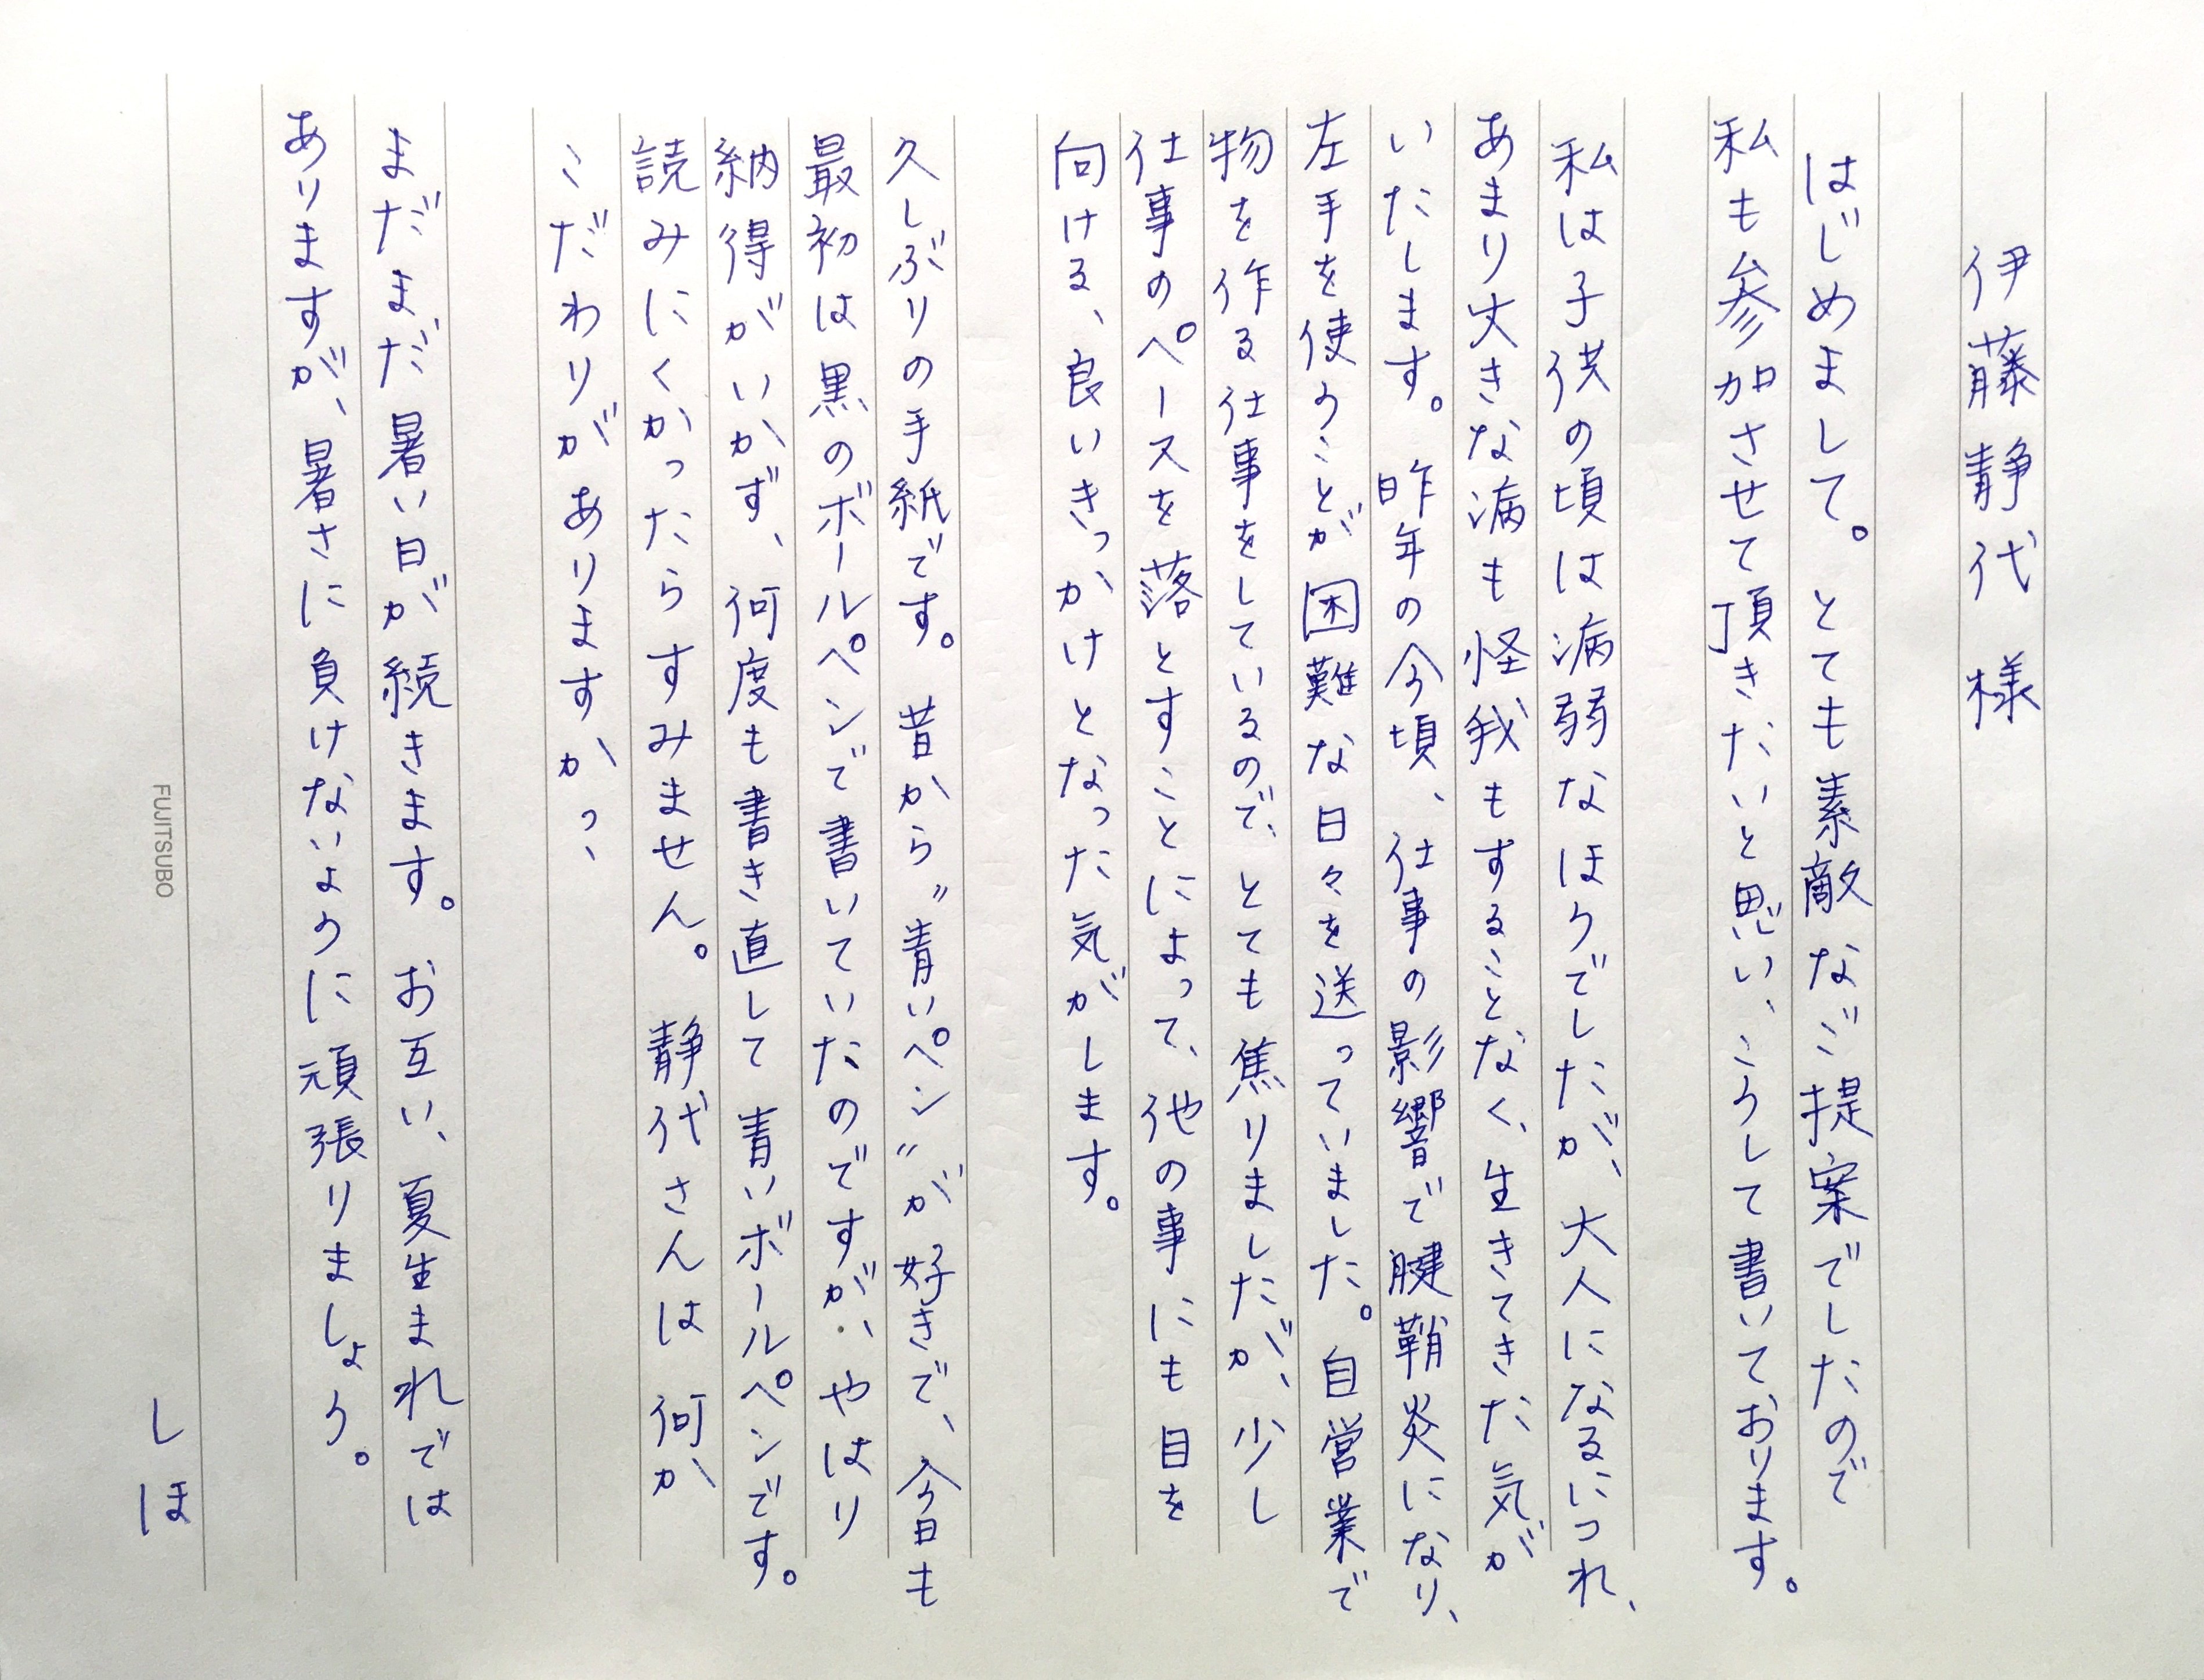 伊藤静代様
はじめまして。とても素敵なご提案でしたので
私も参加させて頂きたいと思い、こうして書いております。
私は子供の頃は病弱なほうでしたが、大人になるにつれ、
あまり大きな病も怪我もすることなく、生きてきた気が
いたします。昨年の今頃、仕事の影響で腱鞘炎になり、
左手を使うことが困難な日々を送っていました。自営業で
物を作る仕事をしているので、とても焦りましたが、少し
仕事のペースを落とすことによって、他の事にも目を
向ける、良いきっかけとなった気がします。
久しぶりの手紙です。昔から〝青いペン〟が好きで、今日も
最初は黒のボールペンで書いていたのですが、やはり
納得がいかず、何度も書き直して青いボールペンです。
読みにくかったらすみません。静代さんは何か
こだわりがありますかっ、
まだまだ暑い日が続きます。お互い、夏生まれでは
ありますが、暑さに負けないように頑張りましょう。
しほ
FUJITSUBO